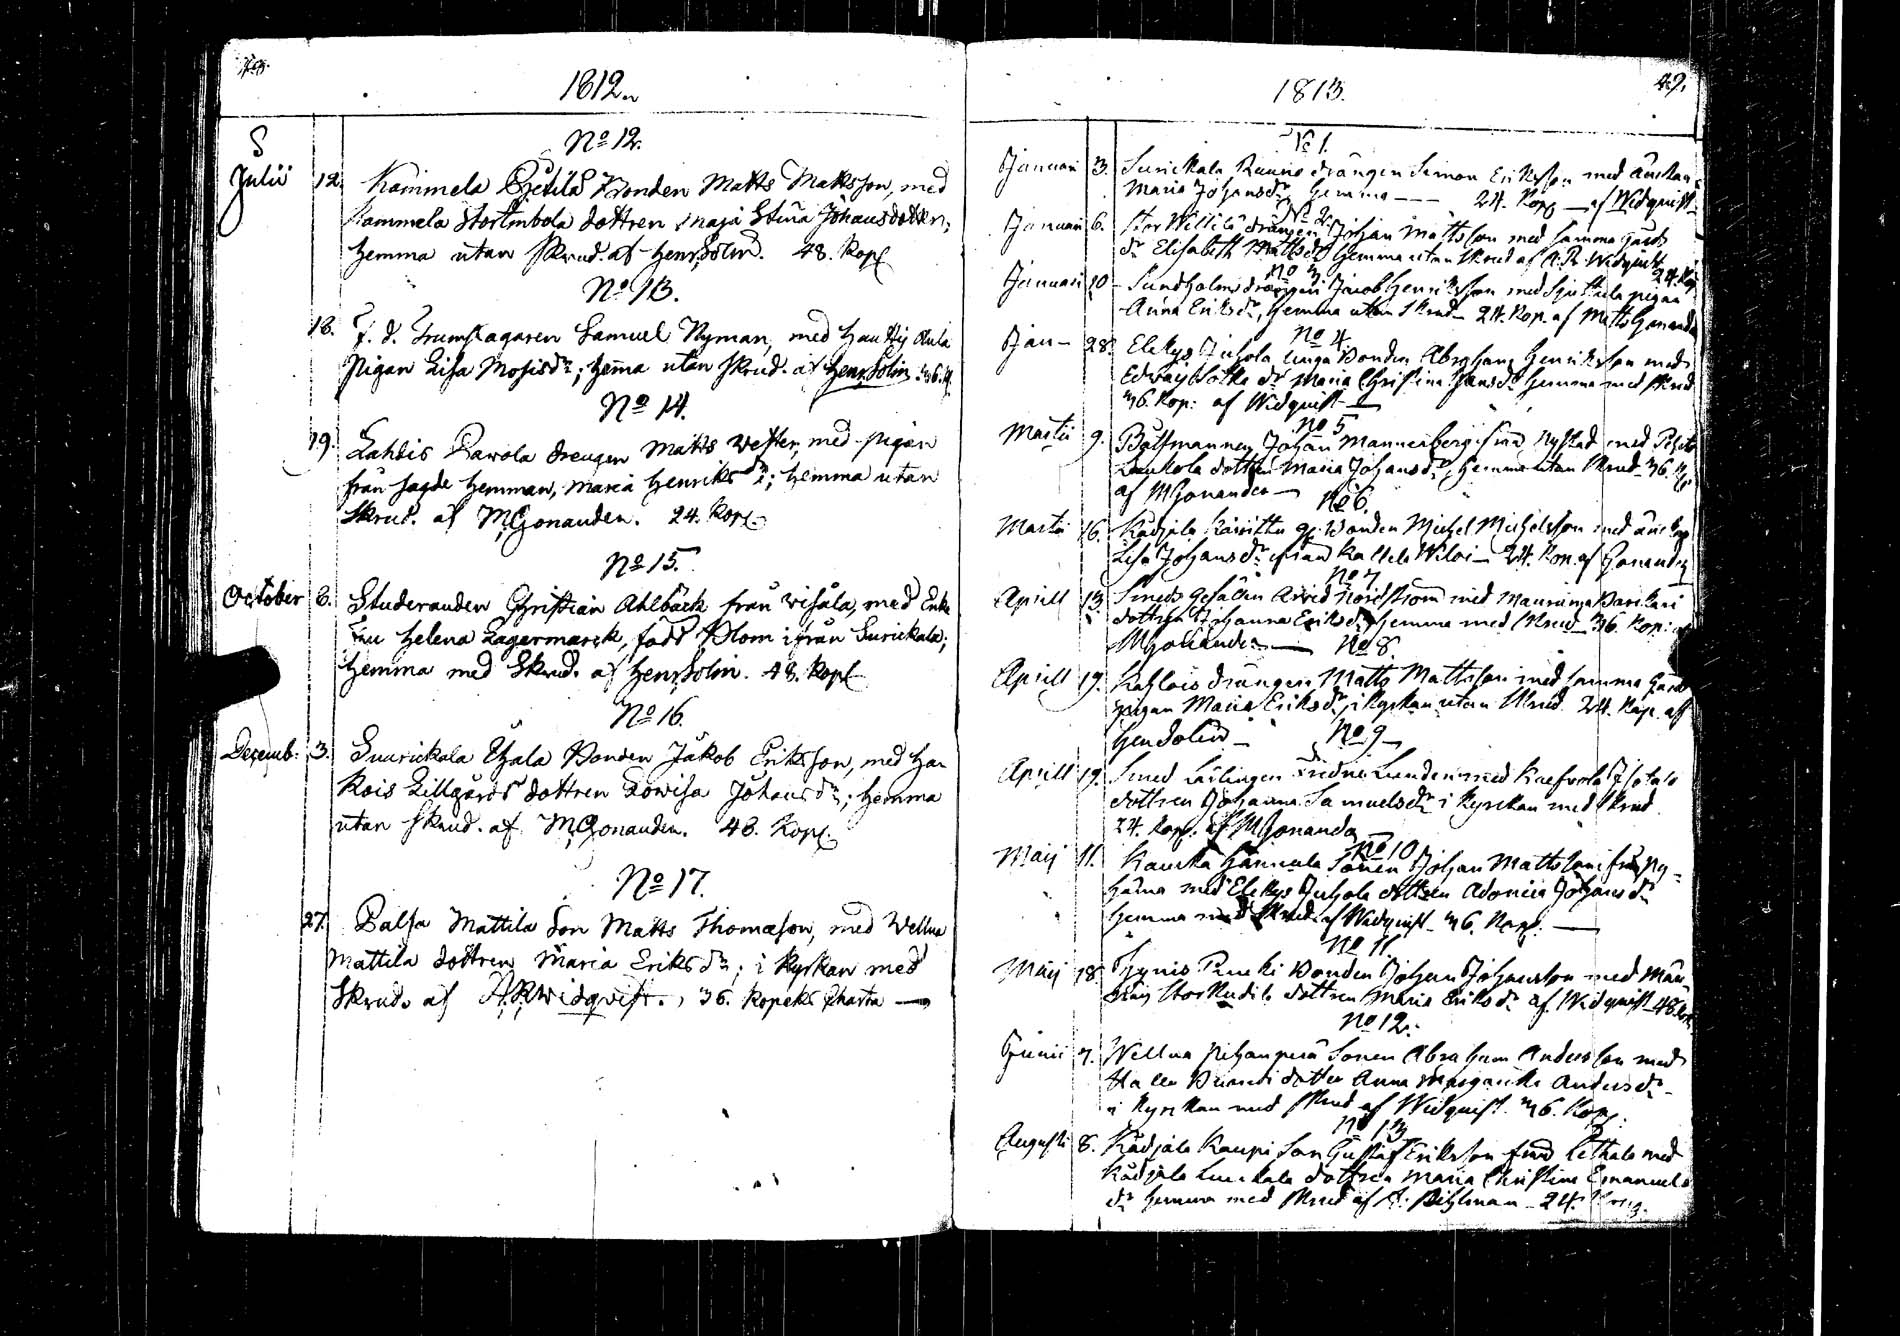 1812.
S
No 12.
Julii 12. Kammela Bonden Matts Mattsson, med
Kammela Stortimbola dottren Maja Stina Johansdotter;
hemma utan Skrud. af Henr. Solin. 48. Kop
No 13.
18. f. d. Trumslagaren Samuel Nyman, med
Pigan Lisa Mosisdr; hema utan Skrud. af Henr. Solin. 36.
No 14.
19. Lahdis Pawola drengen Matts Wester, med pigan
från sagde hemman, Maria Henriksdr; hemma utan
Skrud. af M Gonander. 24. Kop
No 15.
October 6. Studeranden Christian Ahlbäck från wisåla, med Enke
fru Helena Lagermarck, född Blom ifrån Surickala;
hemma med Skrud. af Henr. Solin. 48. Kop
No 16.
Decemb. 3. Suurickala Bonden Jakob Eriksson, med
Lillgårds dottren Lowisa Johansdr; hemma
utan Skrud. af M Gonander. 48. Kop.
No 17.
27. Palsa Mattila Son Matts Thomasson, med Wellua
Mattila dottren Maria Eriksdr; i Kyrkan med
Skrud. af A. R. Widqvist., 36. Kopeks Charta
49.
1813.
No 1.
Januari 3. Surickala drängen Simon Eriksson med änkan
Maria Johansdr hemma 24. Kop af Widquist
No 2.
Januari 6. Stor Willilä drängen Johan Mattsson med samma gårds
dr Elisabeth Mattsdr hemma utan Skrud af A. R. Widquist 24. Kop
No 3
Januari 10 Sundholms drängen Jacob Henriksson med pigan
Anna Eriksdr, hemma utan Skrud 24. Kop. af Matts Gonander
No 4.
Jan 28. Elekys Juhola unga Bonden Abraham Henriksson med
Sotka dr Maria Christina Jansdr hemma med Skrud
36. Kop: af Widquist
No 5
Martii 9. Båtsmannen Johan Mannerberg ifrån Nystad med
Laukola dottren Maria Johansdr, hemma utan Skrud 36.
af M Gonander
No 6.
Martii 16. Kådjala Bonden Michel Michelsson med änckan
Lisa Johansdr ifrån 24. Kop. af Gonander
No 7
Aprill 13. Smeds Gesällen Arvid Nordstrom med
dottren Johanna Eriksdr hemma med Skrud 36. Kop:
M Gonander
No 8.
Aprill 19. Kahlois drängen Matts Mattsson med samma Gårds
pigan Maria Eriksdr, i Kyrkan utan Skrud 24. Kop. af
Hen Solin
No 9
Aprill 19. Smed Lärlingen Lunden med
dottren Johanna Samuelsdr i Kyrkan med Skrud
24. Kop. af M Gonander
No 10
Maij 11. Kauska Hannula Sonen Johan Mattsson från
med Elekys Juhola dottren Johansdr
hemma med Skrud af Widquist 36. Kop.
No 11.
Maij 18. Bonden Johan Johansson med
dottren Maria Eriksdr af Widquist 48.
No 12.
Junii 7. Wellua Sonen Abraham Andersson med
dotter Anna Margareta Andersdr
i Kyrkan med Skrud af Widquist. 36. Kop.
No 13
Augusti 8. Kådjala Kaupi Son Gustaf Eriksson från med
Kådjala dottren Maria Christina Emanuels
dr hemma med Skrud af 24.